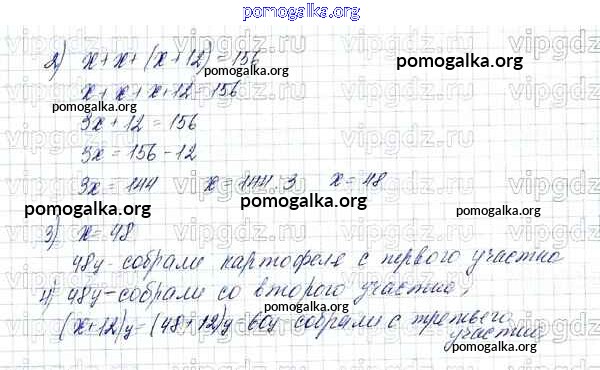 pomogalka.org
2) x+x+(x+12)=156
pomogalka.org pomogalka.org
x+x+x+12=156
pomogalka.org
3x+12=156
3x=156-12
3x=144 x=144:3 x=48
pomogalka.org pomogalka.org pomogalka.org
3) x=48
48ц-собрали картофеля с первого участка
4) 48ц-собрали со второго участка,
pomogalka.org pomogalka.org
(x+12)ц-(48+12)ц 60ц собрали с третьего
участка
pomogalka.org